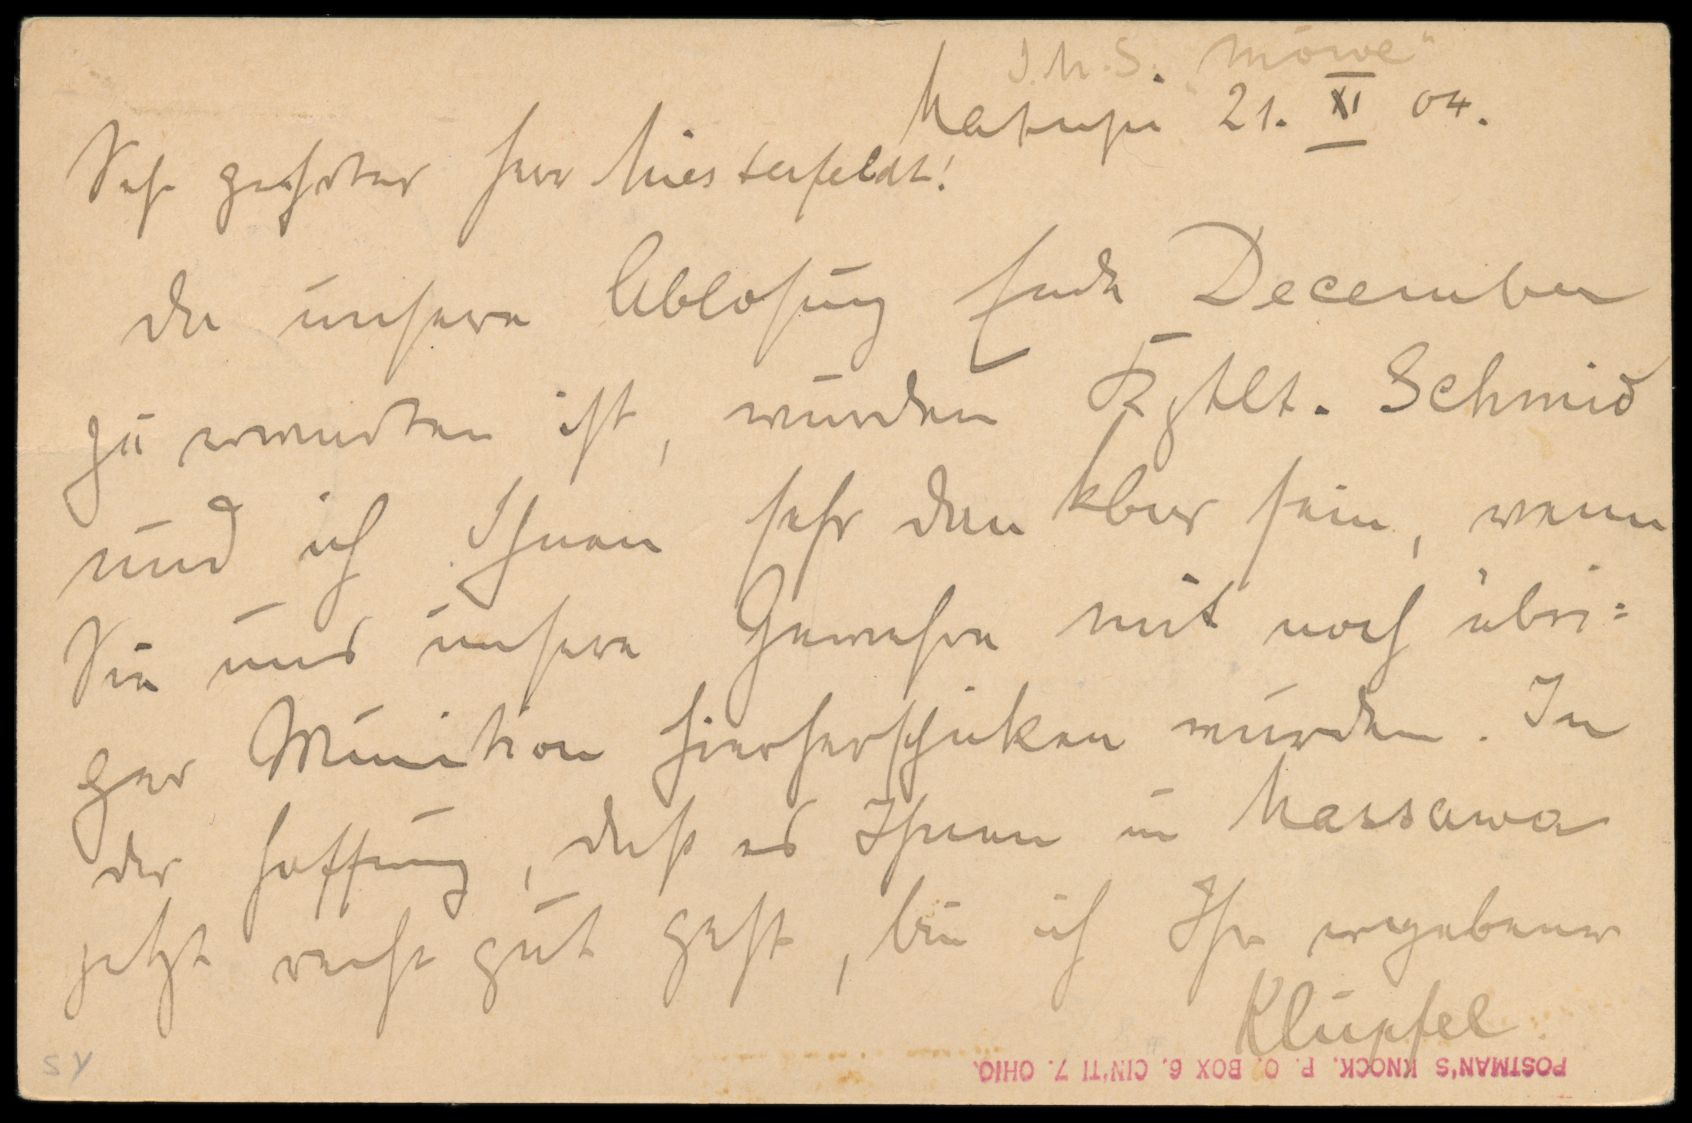 S.M.S. „Möwe“
Matupi 21. XI 04.
Sehr geehrter Herr Miesterfeldt!
da unsere Ablösung Ende December
zu erwarten ist, würden Kptlt. Schmid
und ich Ihnen sehr dankbar sein, wenn
Sie uns unsere Gewehre mit noch übri=
ger Munition hierherschicken würden. In
der Hoffnung, daß es Ihnen in Massawa
jetzt recht gut geht, bin ich Ihr ergebener
Klüpfel
POSTMAN'S KNOCK. P. O. BOX 6. CIN'TI 7. OHIO.
SY